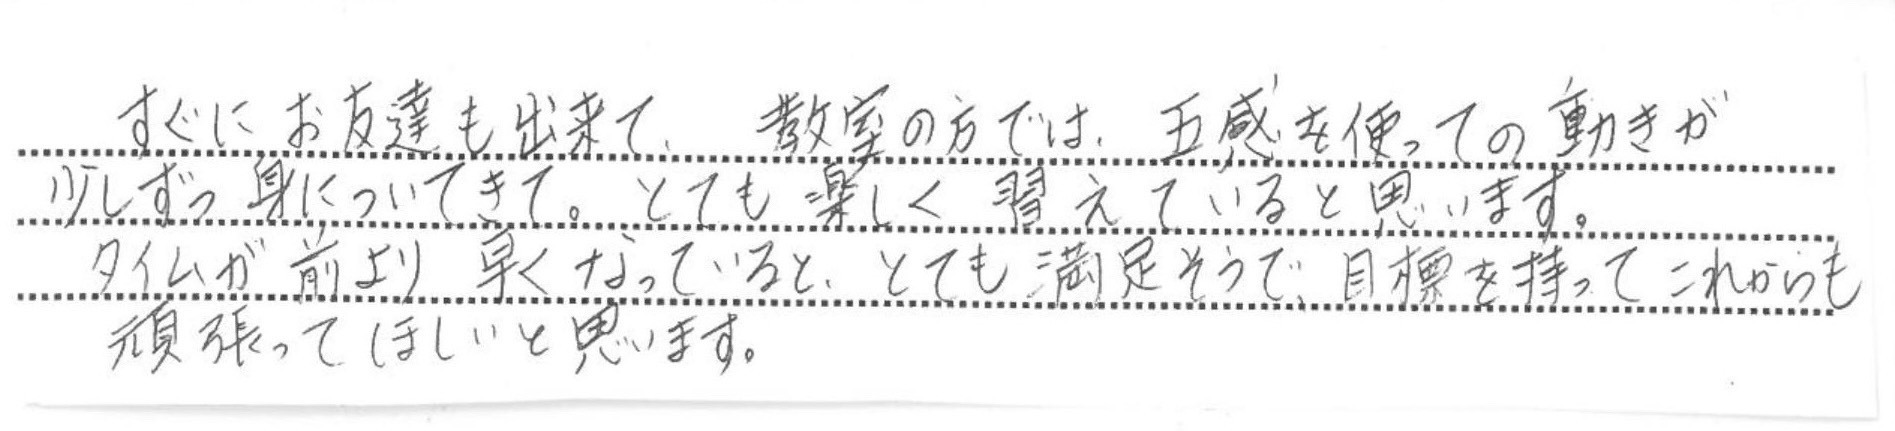 すぐにお友達も出来て、教室の方では、五感を使っての動きが
少しずつ身についてきて。とても楽しく習えていると思います。
タイムが前より早くなっていると、とても満足そうで、目標を持ってこれからも
頑張ってほしいと思います。